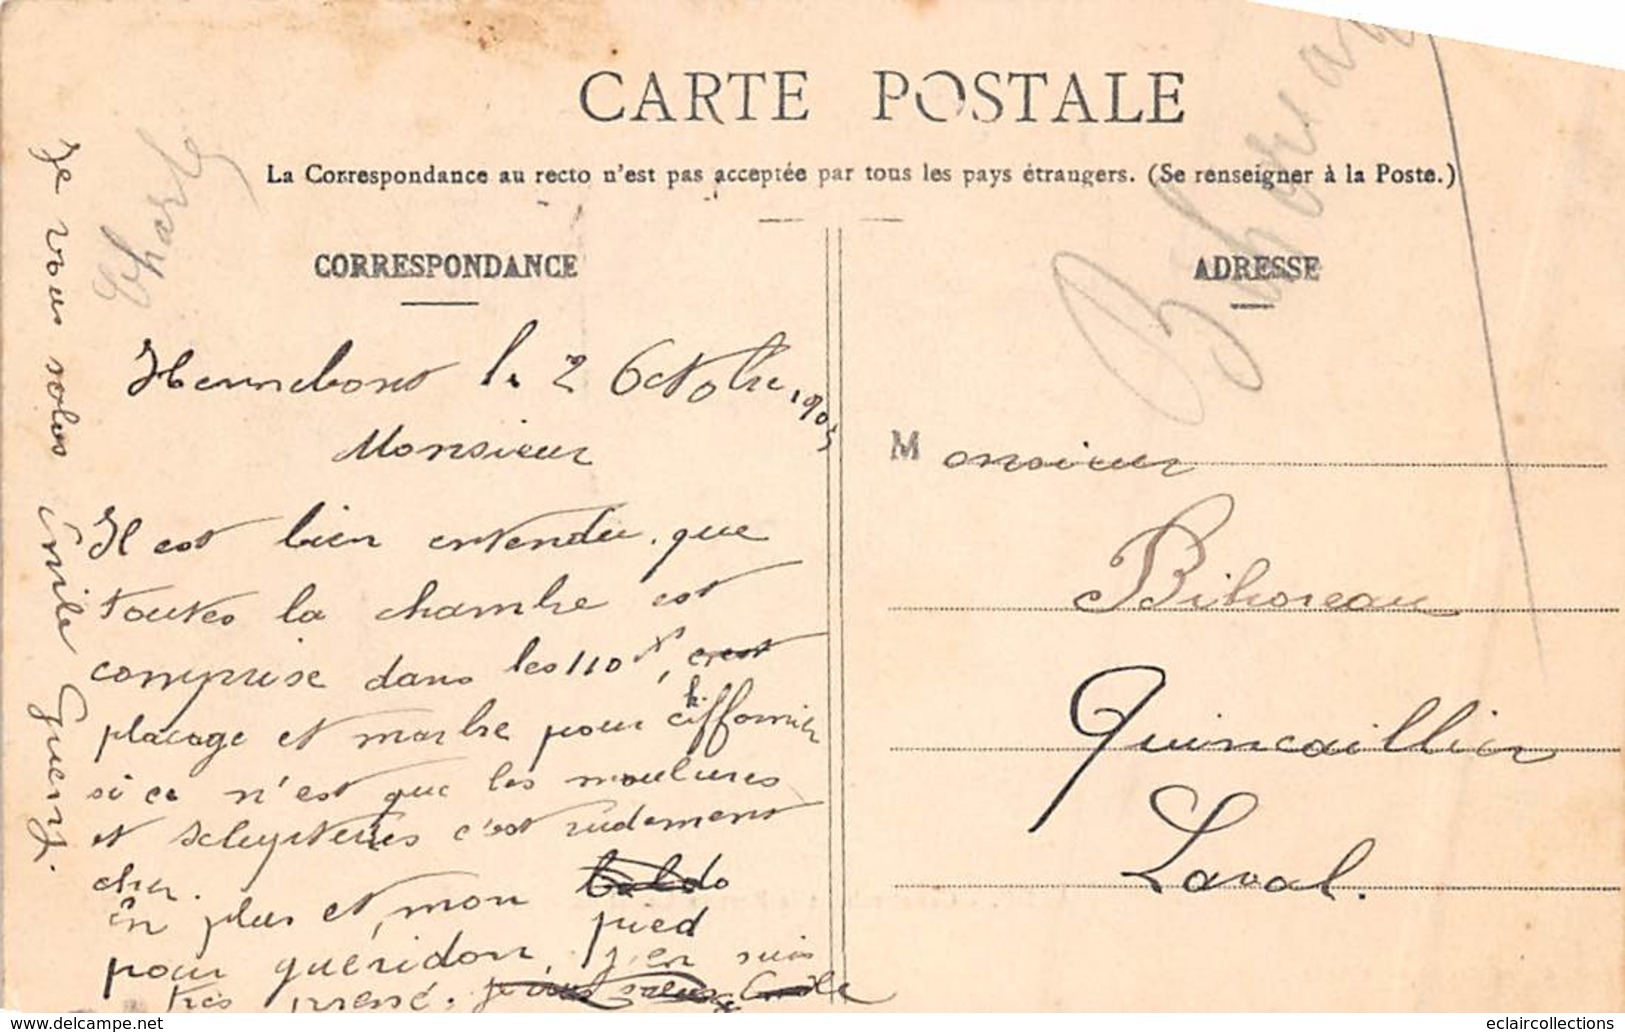 CARTE POSTALE
La Correspondance au recto n'est pas acceptée par tous les pays étrangers. (Se renseigner à la Poste.)
CORRESPONDANCE
Hennebont le 2 Octobre 1905
Monsieur
Il est bien entendu que
toutes la chambre est
comprise dans les 110 f, c'est
placage et marbre pour chiffonier
si ce n'est que les moulures
et sclupteures c'est rudement
cher.
En plus et, mon
pied
pour guéridon, j'en suis
très pressé.
Je vous salus Emile Guerry.
Charles
ADRESSE
Monsieur
Bihoreau
Quincaillier
Laval.
www.delcampe.net
eclaircollections